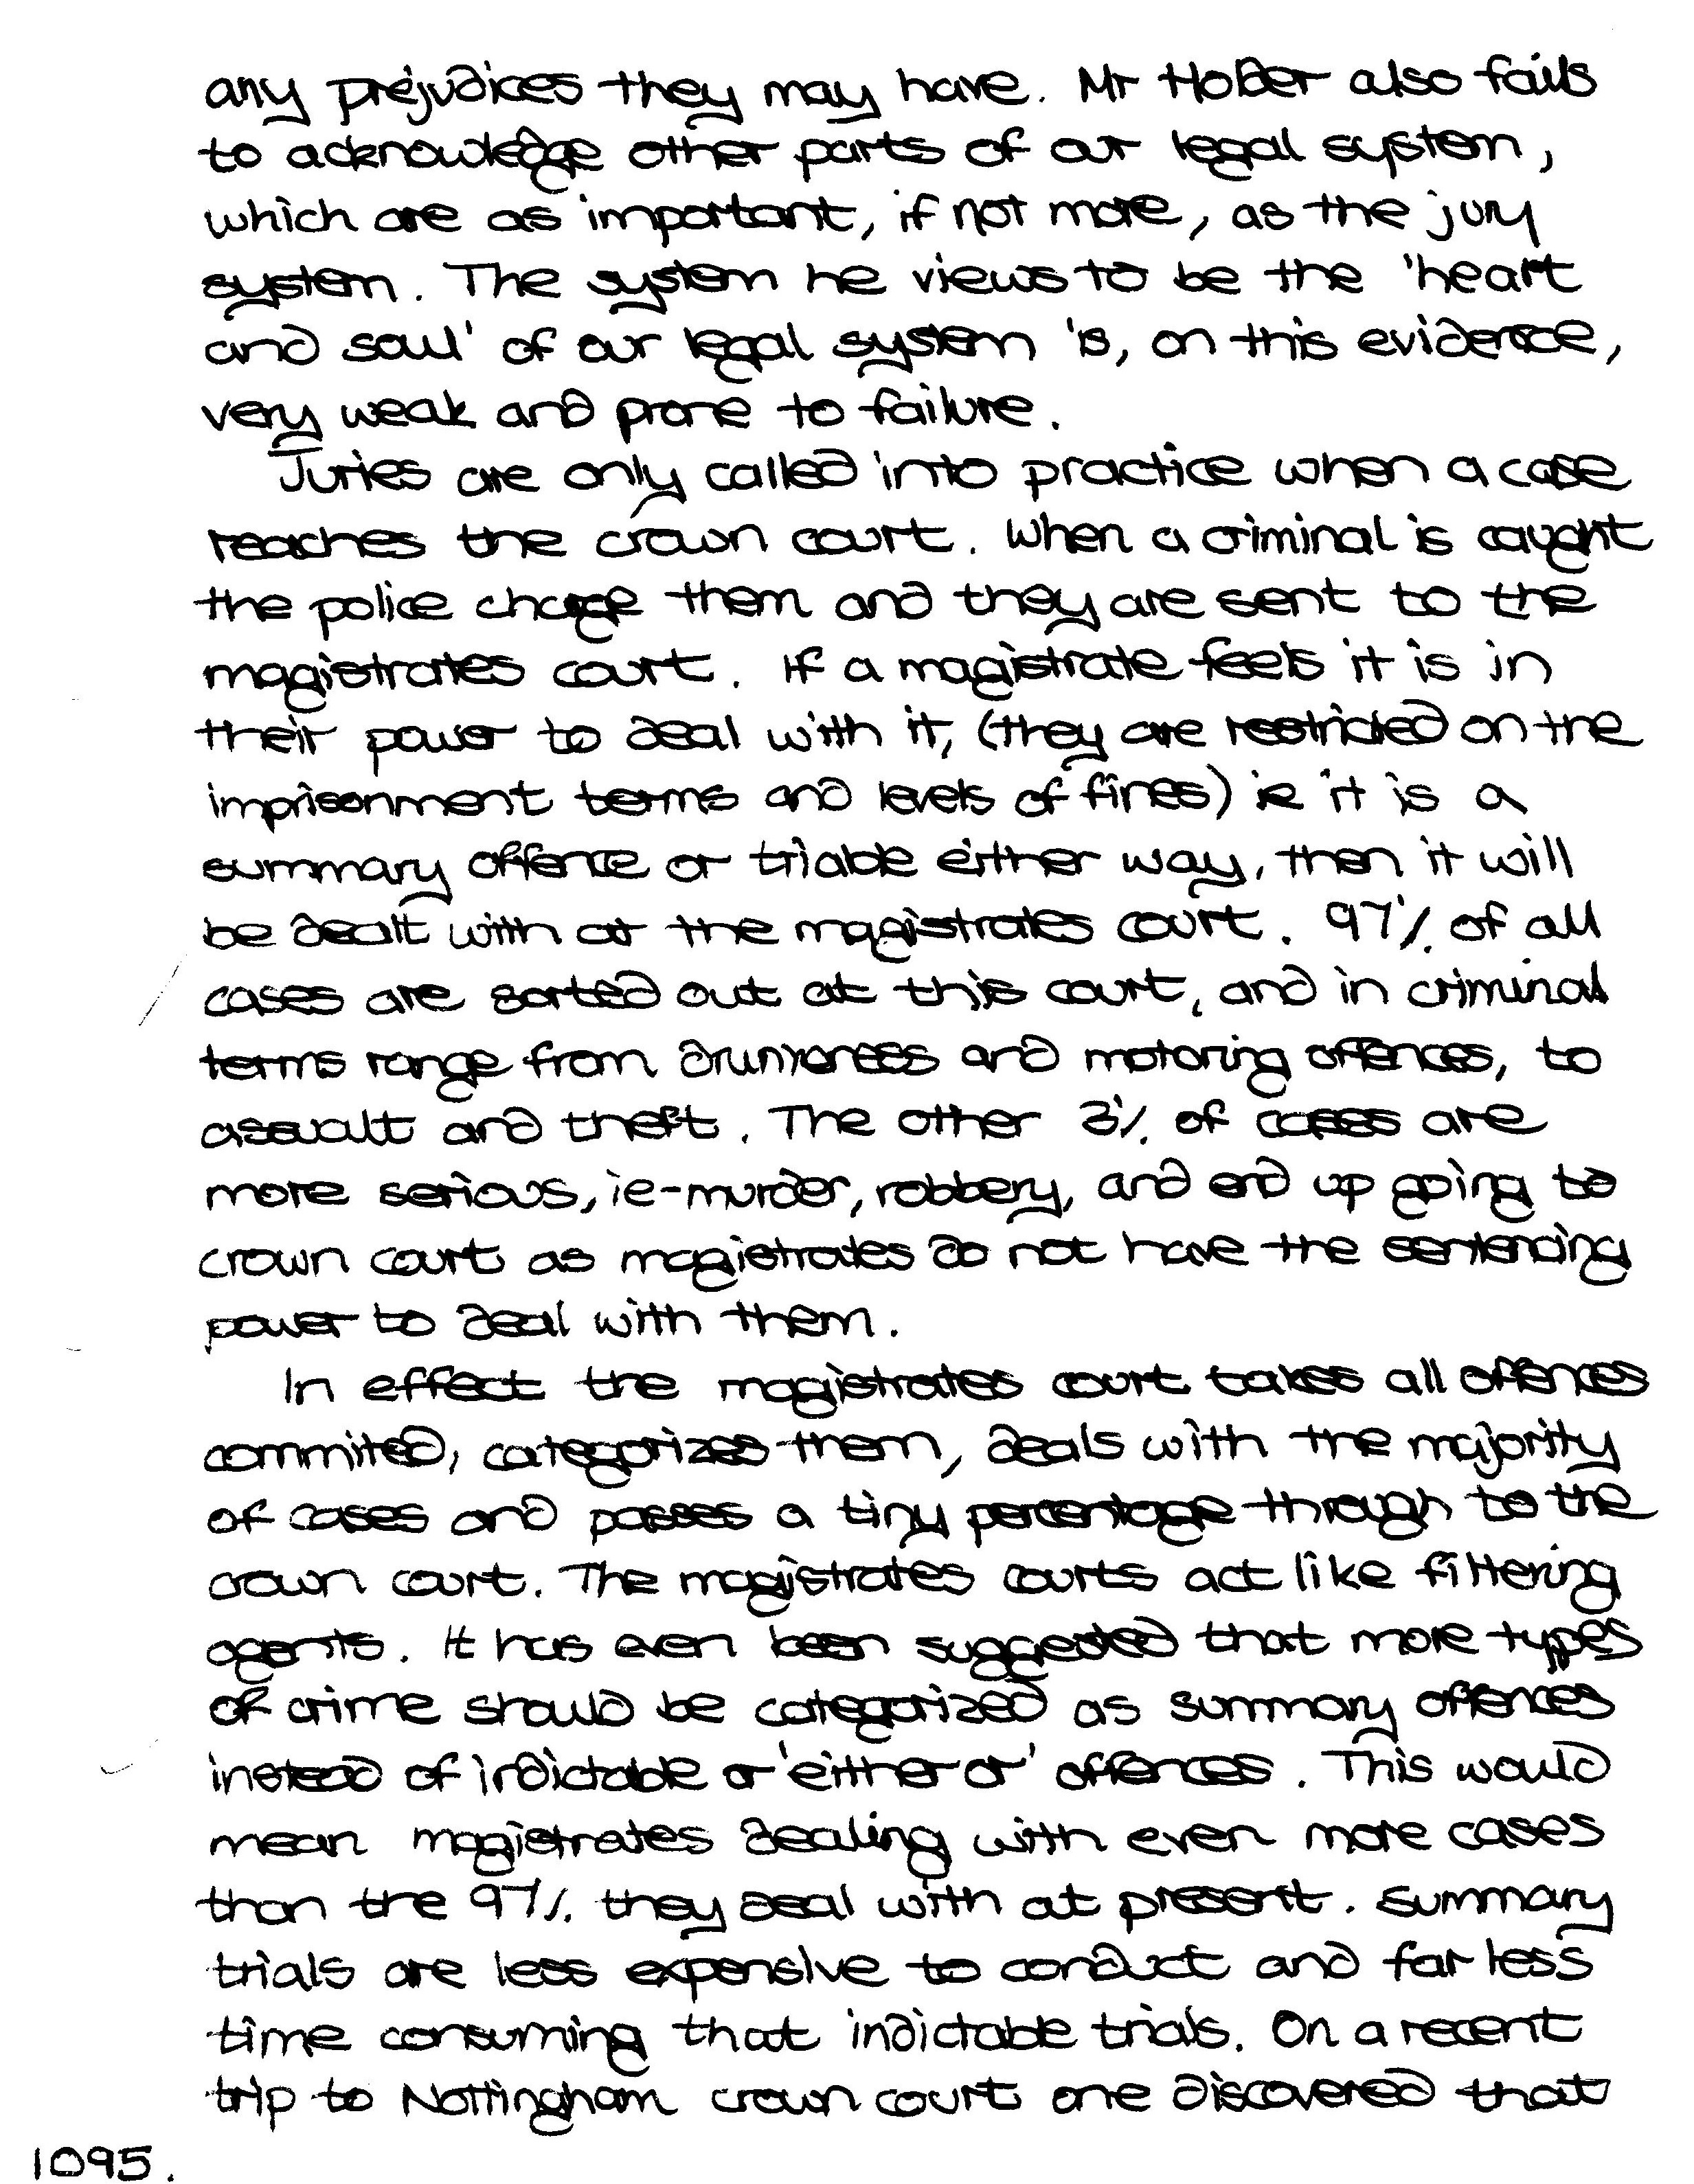 any prejudices they may have. Mr Holder also fails
to acknowledge other parts of our legal system,
which are as important, if not more, as the jury
system. The system he views to be the 'heart
and soul' of our legal system is, on this evidence,
very weak and prone to failure.
Juries are only called into practice when a case
reaches the crown court. When a criminal is caught
the police charge them and they are sent to the
magistrates court. If a magistrate feels it is in
their power to deal with it, (they are restricted on the
imprisonment terms and levels of fines) ie it is a
summary offence or triable either way, then it will
be dealt with at the magistrates court. 97% of all
cases are sorted out at this court, and in criminal
terms range from drunkeness and motoring offences, to
assualt and theft. The other 3% of cases are
more serious, ie-murder, robbery, and end up going to
crown court as magistrates do not have the sentencing
power to deal with them.
In effect the magistrates court takes all offences
commited, categorizes them, deals with the majority
of cases and passes a tiny percentage through to the
crown court. The magistrates courts act like filtering
agents. It has even been suggested that more types
of crime should be categorized as summary offences
instead of indictable or 'either or' offences. This would
mean magistrates dealing with even more cases
than the 97% they deal with at present. Summary
trials are less expensive to conduct and far less
time consuming that indictable trials. On a recent
trip to Nottingham crown court one discovered that
1095.